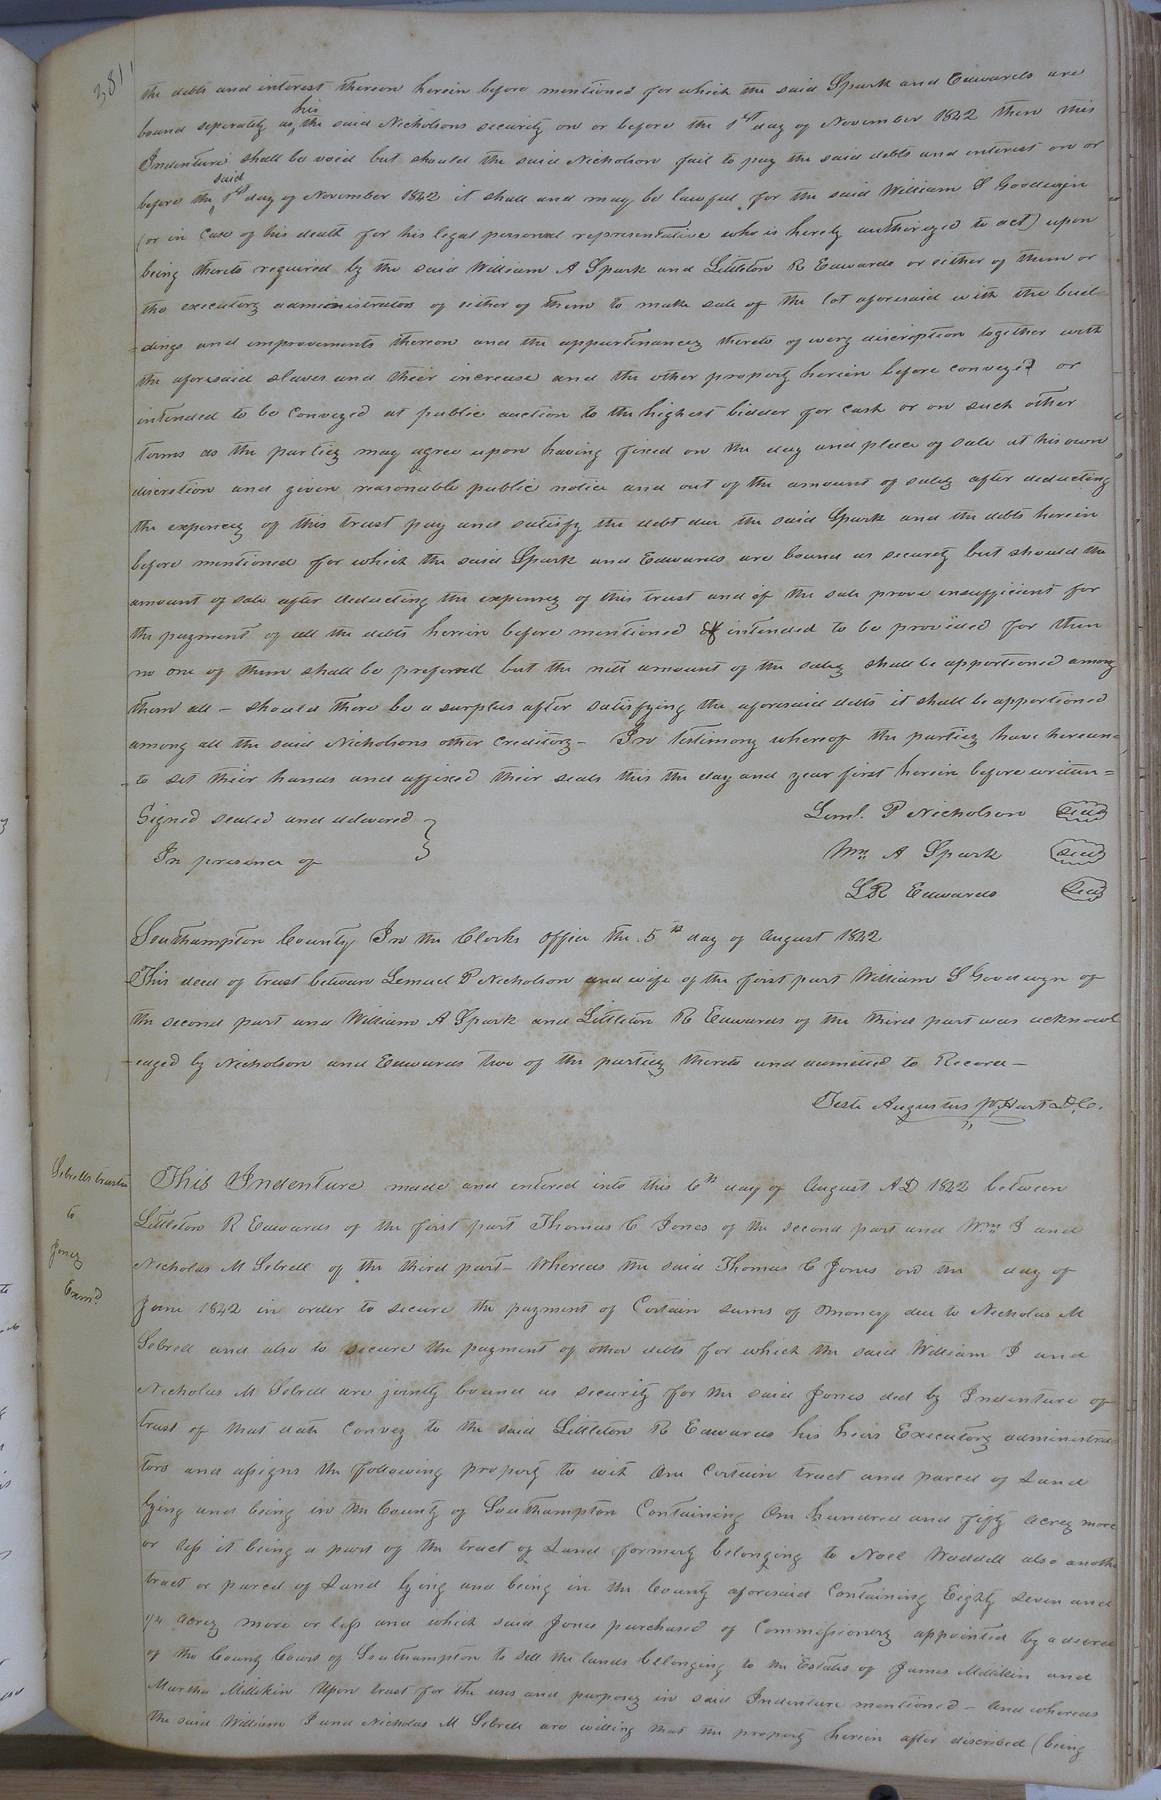 381
the debts and interest thereon herein before mentioned for which the said Spark and Edwards are
bound seperately as his the said Nicholsons security on or before the 1st day of November 1842 then this
Indenture shall be void but should the said Nicholson fail to pay the said debts and interest on or
before the said 1st day of November 1842 it shall and may be lawful for the said William S Goodwyn
(or in case of his death for his legal personal representative who is hereby authorized to act) upon
being thereto required by the said William A Spark and Littleton R Edwards or either of them or
the executory administrators of either of them to make sale of the lot aforesaid with the buil-
-dings and improvements thereon and the appurtenancey thereto of every discription together with
the aforesaid slaves and their increase and the other property herein before conveyed or
intended to be conveyed at public auction to the highest bidder for cash or on such other
terms as the partiey may agree upon having fixed on the day and place of sale at his own
discretion and given reasonable public notice and out of the amount of saley after deducting
the expencey of this trust pay and satisfy the debt due the said Spark and the debts herein
before mentioned for which the said Spark and Edwards are bound as security but should the
amount of sale after deducting the expensey of this trust and of the sale prove insufficient for
the payment of all the debts herein before mentioned & intended to be provided for then
no one of them shall be preferred but the nett amount of the saley shall be apportioned among
them all – should there be a surplus after satisfying the aforesaid debts it shall be apportioned
among all the said Nicholsons other creditory – In testimony whereof the partiey have hereun-
-to set their hands and affixed their seals this the day and year first herein before written =
Signed sealed and delivered } Leml. P Nicholson Seal
In presence of Wm A Spark Seal
L R Edwards Seal
Southampton County In the Clerks office the 5th day of August 1842
This deed of trust between Lemuel P Nicholson and wife of the first part William S Goodwyn of
the second part and William A Spark and Littleton R Edwards of the third part was acknowl
-edged by Nicholson and Edwards two of the partiey thereto and admitted to Record –
Teste Augustus W. Hart D.C.
Sebrells trustee
to
Jones
Examd.
This Indenture made and entered into this 6th day of August AD 1842 between
Littleton R Edwards of the first part Thomas C Jones of the second part and Wm J and
Nicholas M Sebrell of the third part – Whereas the said Thomas C Jones on the day of
June 1842 in order to secure the payment of Certain sums of money due to Nicholas M
Sebrell and also to secure the payment of other debts for which the said William J and
Nicholas M Sebrell are jointly bound as security for the said Jones did by Indenture of
trust of that date convey to the said Littleton R Edwards his heirs Executory administra-
tors and assigns the following property to wit One Certain tract and parcel of Land
lying and being in the County of Southampton Containing One hundred and fifty acrey more
or less it being a part of the tract of Land formerly belonging to Noel Waddell also another
tract or parcel of Land lying and being in the County aforesaid Containing Eighty seven and
1/4 acrey more or less and which said Jones purchased of Commissionery appointed by a decree
of the County Court of Southampton to sell the lands belonging to the Estates of James Millikin and
Martha Millikin Upon trust for the uses and purposey in said Indenture mentioned – And whereas
the said William J and Nicholas M Sebrell are willing that the property herein after discribed (being